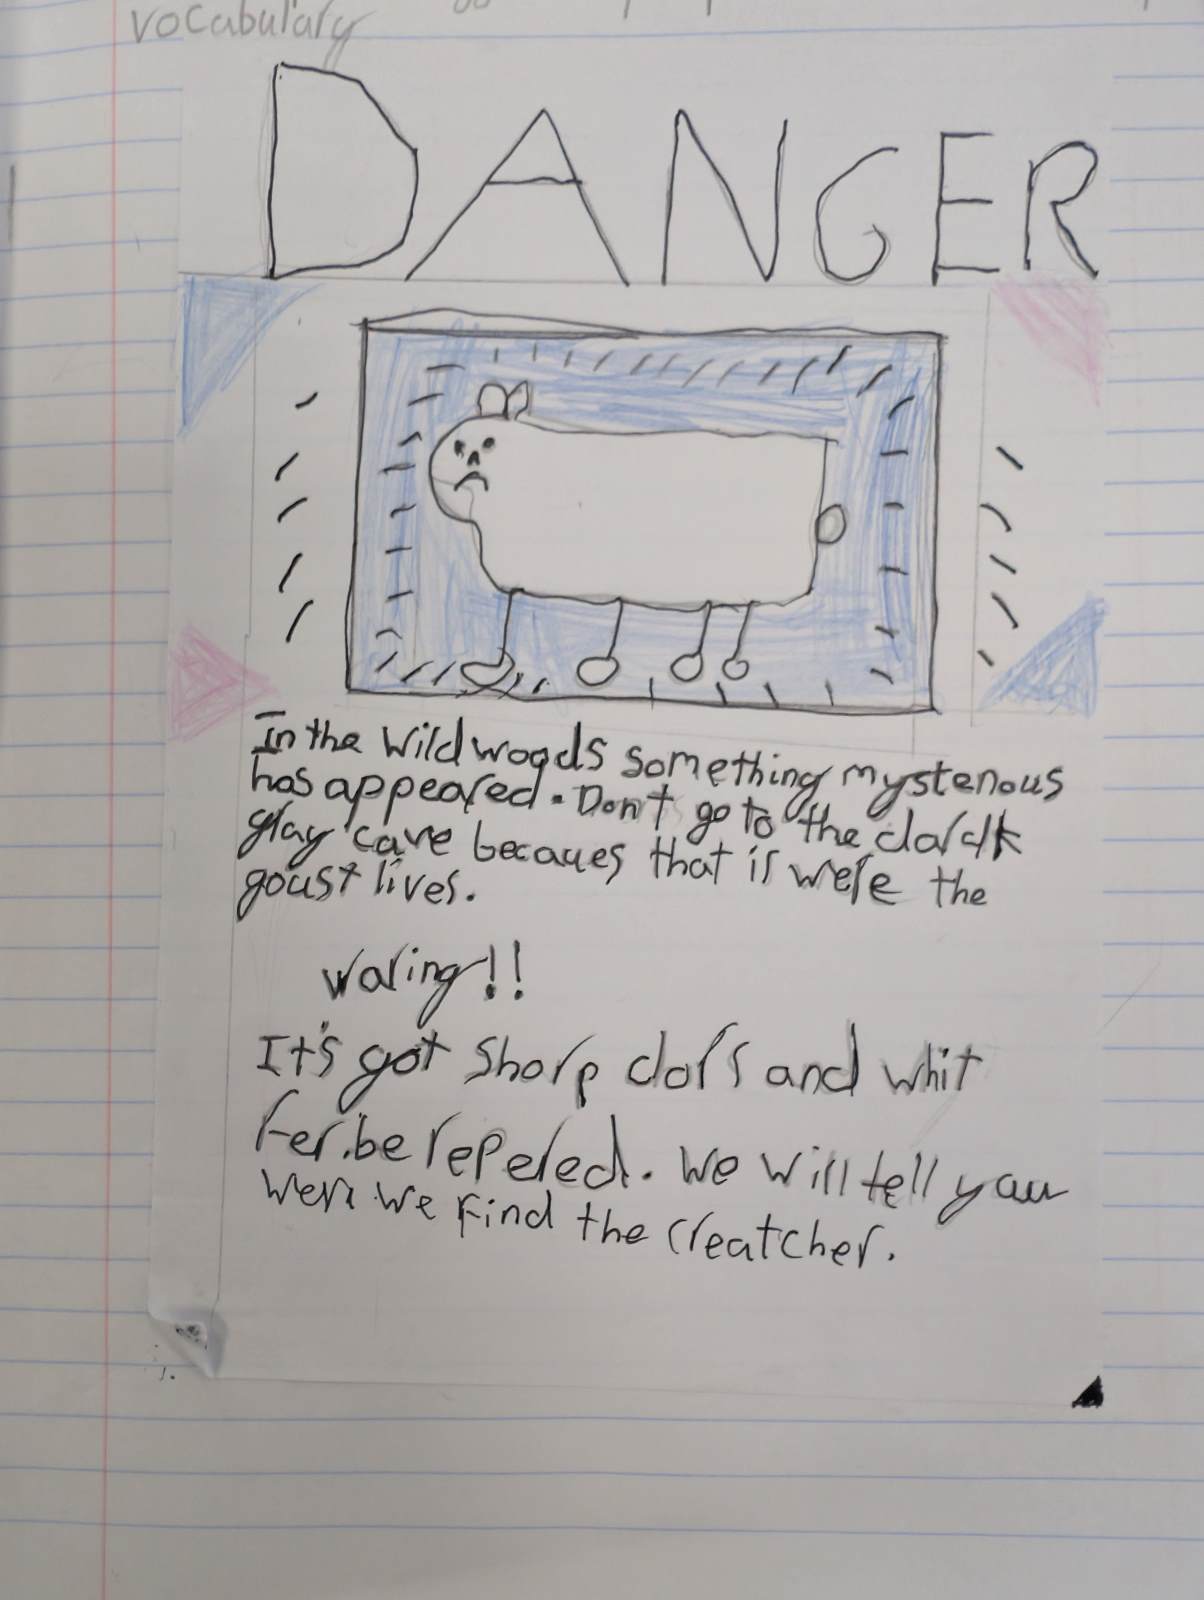 vocabulary
DANGER
In the Wild woods something mysterious
has appeared. Don't go to the dardk
gray cave becaues that is were the
goust lives.
waring!!
It's got Sharp clors and whit
fer. be repered. We will tell you
wen we Find the creatcher.